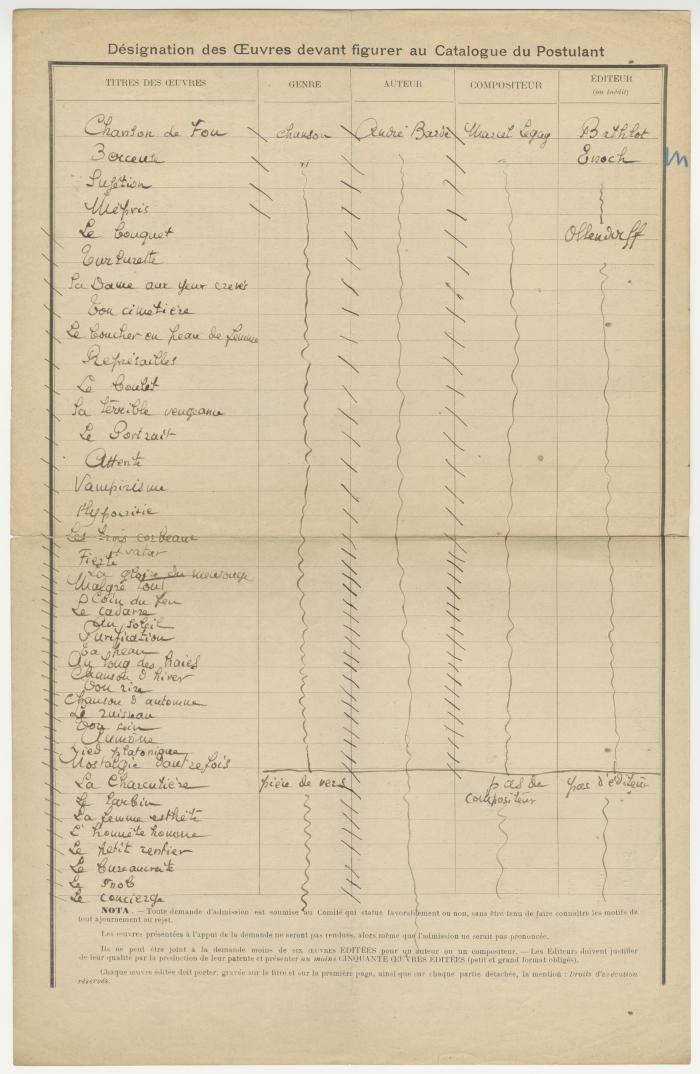 Désignation des Œuvres devant figurer au Catalogue du Postulant
TITRES DES ŒUVRES GENRE AUTEUR COMPOSITEUR ÉDITEUR
(ou inédit)
Chanson de Fou chanson André Barde Marcel Legay Bathlot
Berceuse Enoch
Sujétion
Mépris
Le bouquet Ollendorff
Turlurette
La Dame aux yeux crevés
Ton cimetière
Le boucher en peau de femme
Représailles
Le boulet
La terrible vengeance
Le Portrait
Attente
Vampirisme
Hypocrisie
Les trois corbeaux
Avatar
Fierté
La gloire du mensonge
Malgré tout
Coin du feu
Le cadavre
Au soleil
Purification
Ta peau
Au long des haies
Chanson d'hiver
Ton rire
Chanson d'automne
Le ruisseau
Ton sein
Aumône
Lied platonique
Nostalgie d'autrefois
La Charcutière pièce de vers pas de compositeur pas d'éditeur
Le larbin
La femme esthète
L'honnête homme
Le petit rentier
Le bureaucrate
Le snob
Le concierge
NOTA. — Toute demande d'admission est soumise au Comité qui statue favorablement ou non, sans être tenu de faire connaître les motifs de
tout ajournement ou rejet.
Les œuvres présentées à l'appui de la demande ne seront pas rendues, alors même que l'admission ne serait pas prononcée.
Ils ne peut être joint à la demande moins de SIX ŒUVRES ÉDITÉES pour un auteur ou un compositeur. — Les Éditeurs doivent justifier
de leur qualité par la production de leur patente et présenter au moins CINQUANTE ŒUVRES ÉDITÉES (petit et grand format obligés).
Chaque œuvre éditée doit porter, gravée sur le titre et sur la première page, ainsi que sur chaque partie détachée, la mention : Droits d'exécution
réservés.